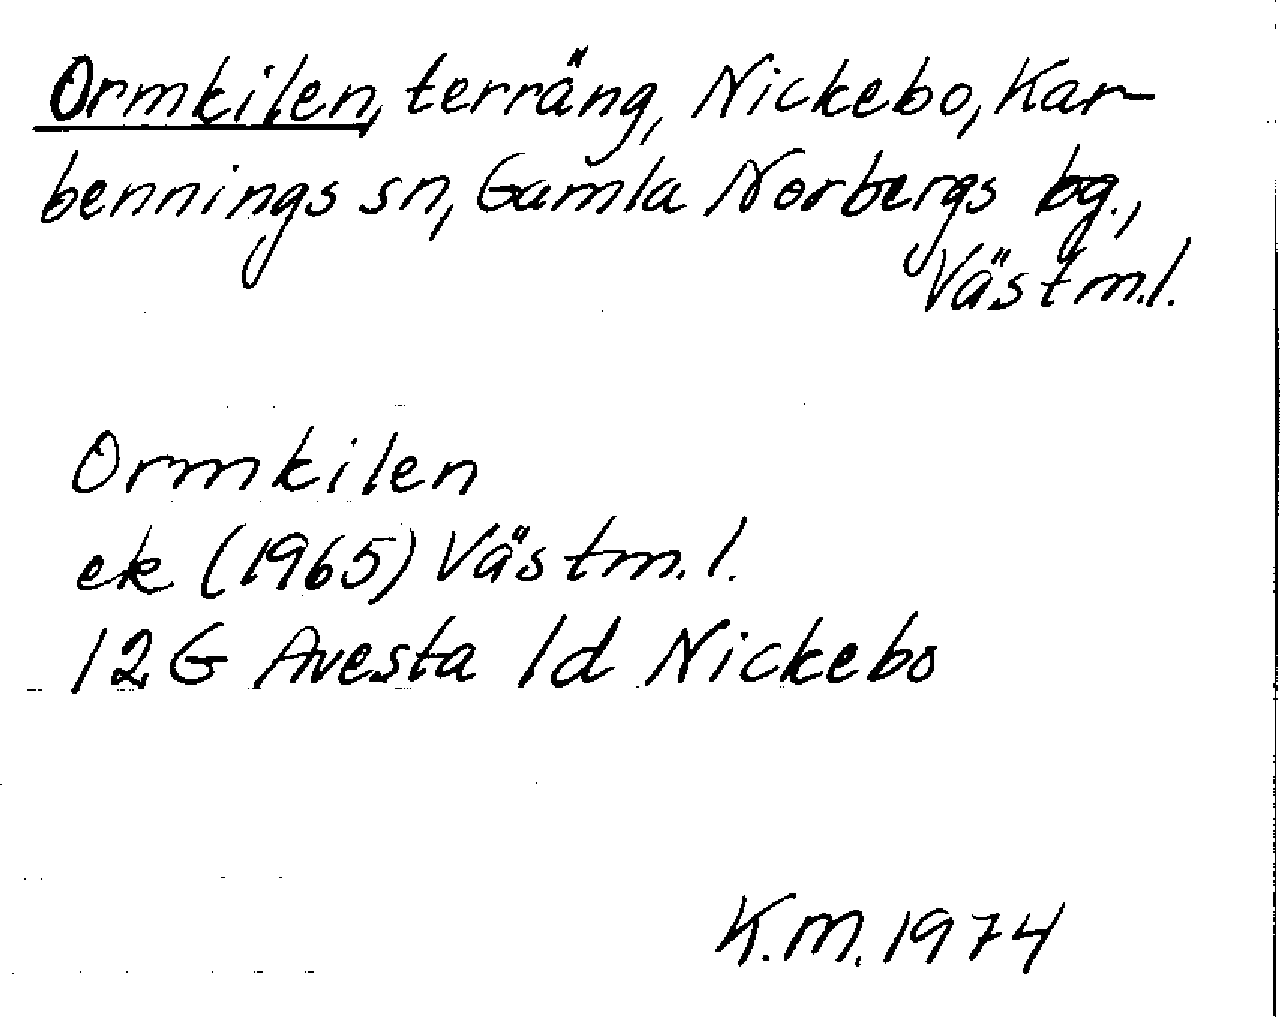 Ormkilen, terräng, Nickebo, Kar-
bennings sn, Gamla Norbergs bg.,
Västm.l.
Ormkilen
ek (1965) Västm.l.
12G Avesta 1d Nickebo
K.M. 1974